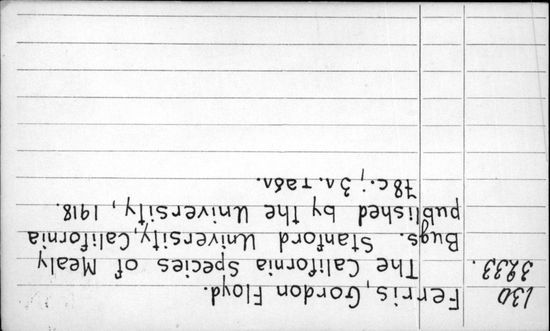 130
3933.
Ferris, Gordon Floyd.
The California Species of Mealy
Bugs. Stanford University, California
published by the University, 1918.
78 c.; 3 л. табл.